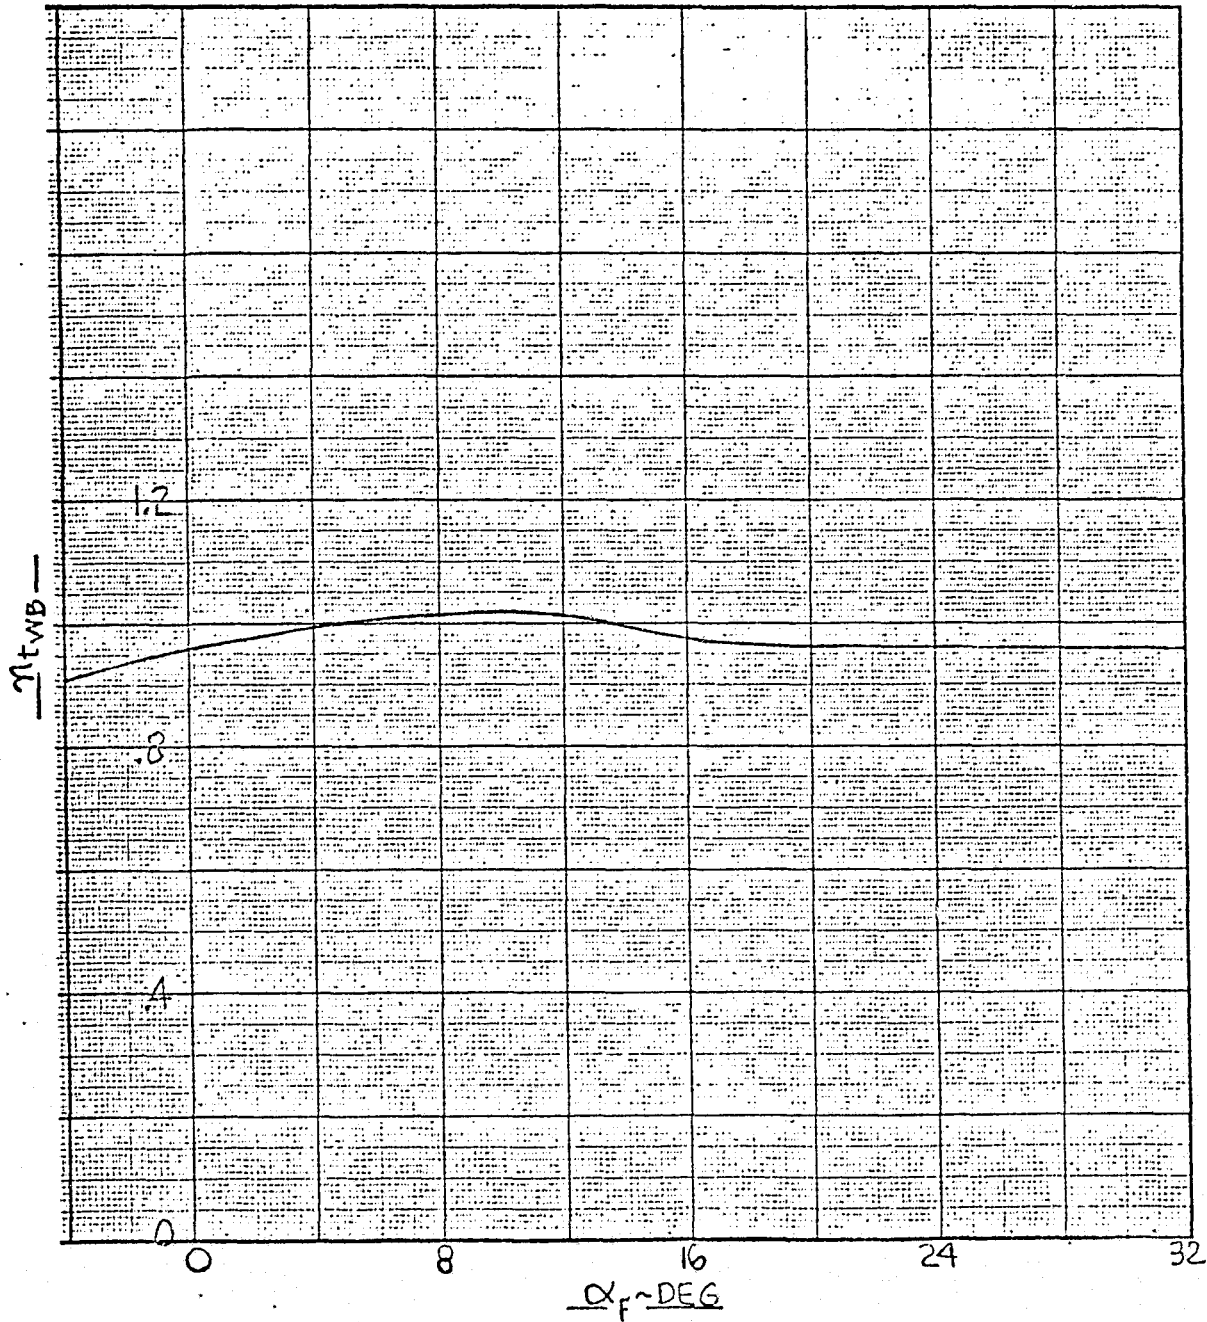 1.2
η tWB
.8
.4
0
0 8 16 24 32
α F ~ DEG